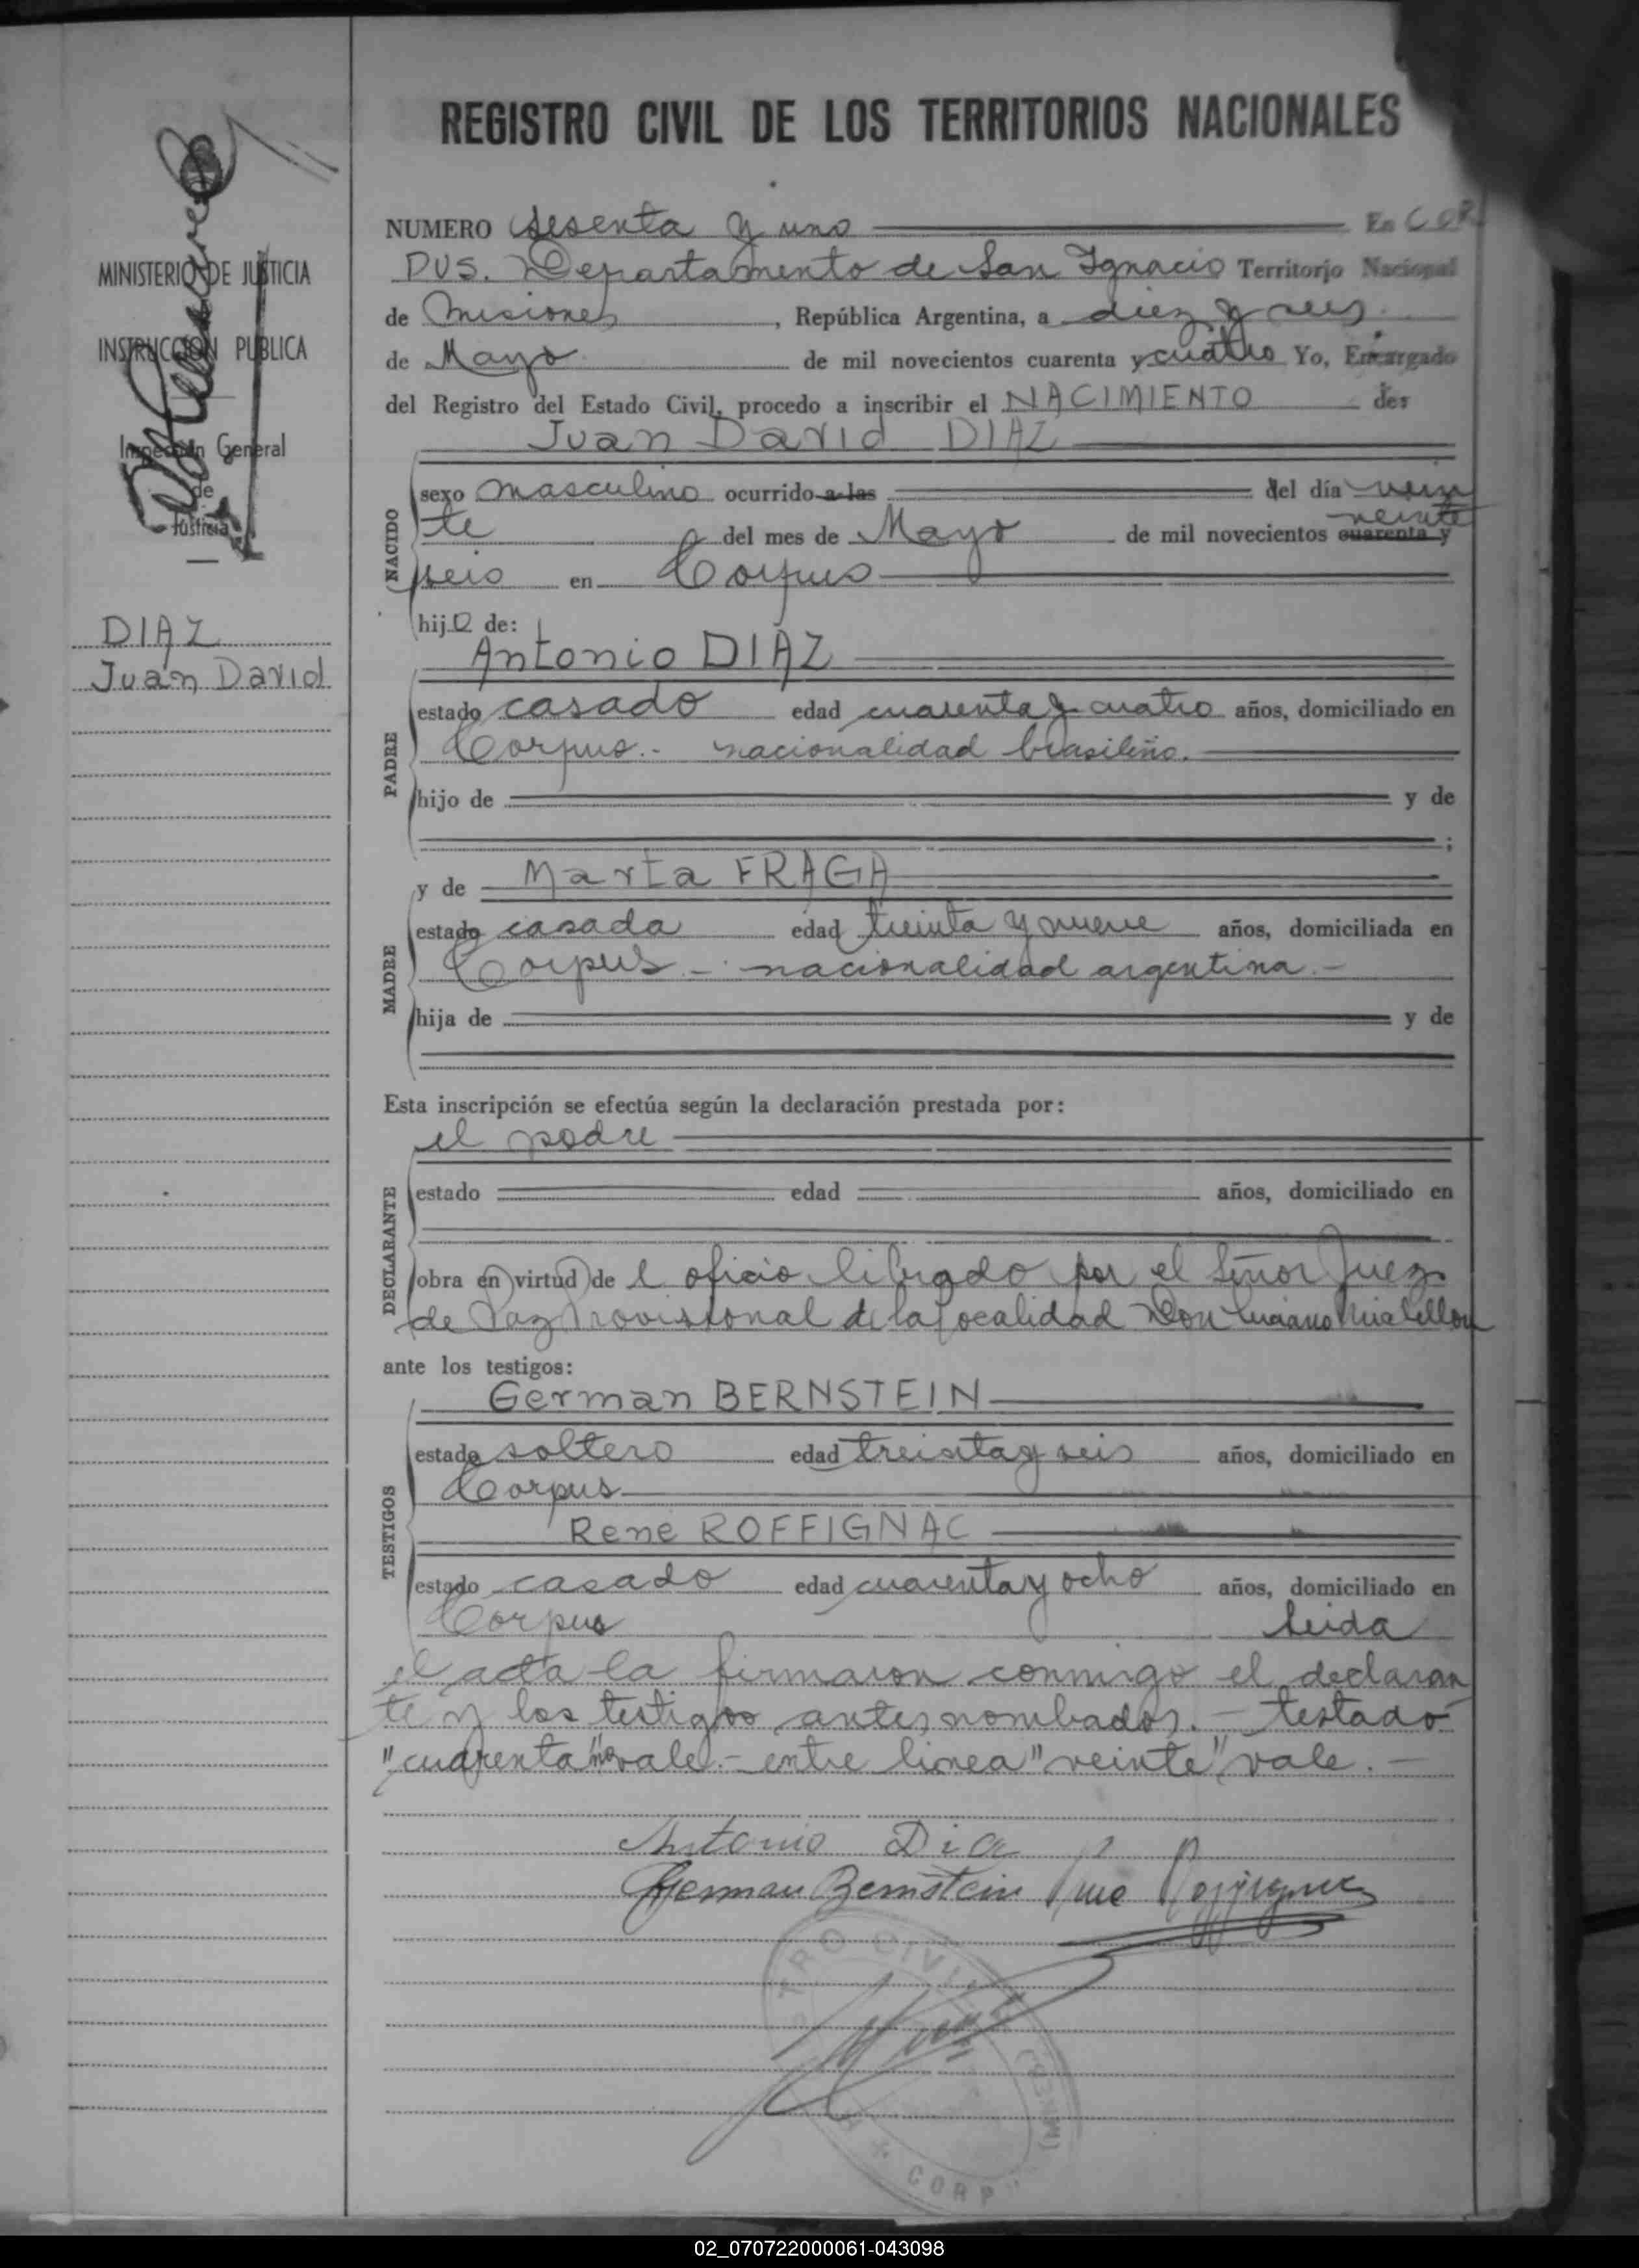 REGISTRO CIVIL DE LOS TERRITORIOS NACIONALES
NUMERO sesenta y uno En COR
PUS. Departamento de San Ignacio Territorio Nacional
de Misiones, República Argentina, a diez y seis
de Mayo de mil novecientos cuarenta y cuatro Yo, Encargado
del Registro del Estado Civil, procedo a inscribir el NACIMIENTO de:
Juan David DIAZ
NACIDO
sexo masculino ocurrido a las del día vein
te del mes de Mayo de mil novecientos cuarenta y
veinte
seis en Corpus
hijo de:
Antonio DIAZ
PADRE
estado casado edad cuarenta y cuatro años, domiciliado en
Corpus.- nacionalidad brasileño.
hijo de y de
;
y de Marta FRAGA
MADRE
estado casada edad treinta y nueve años, domiciliada en
Corpus - nacionalidad argentina.-
hija de y de
Esta inscripción se efectúa según la declaración prestada por:
el padre
DECLARANTE
estado edad años, domiciliado en
obra en virtud de l oficio librado por el Señor Juez
de Paz Provisional de la localidad Don Luciano
ante los testigos:
German BERNSTEIN
TESTIGOS
estado soltero edad treinta y seis años, domiciliado en
Corpus
Rene ROFFIGNAC
estado casado edad cuarenta y ocho años, domiciliado en
Corpus Leida
el acta la firmaron conmigo el declaran
te y los testigos antes nombados.- testado
"cuarenta" no vale.- entre linea "veinte" vale.-
Antonio Dia
German Bernstein
MINISTERIO DE JUSTICIA
INSTRUCCION PUBLICA
Inspección General
de
Justicia
DIAZ
Juan David
02_070722000061-043098